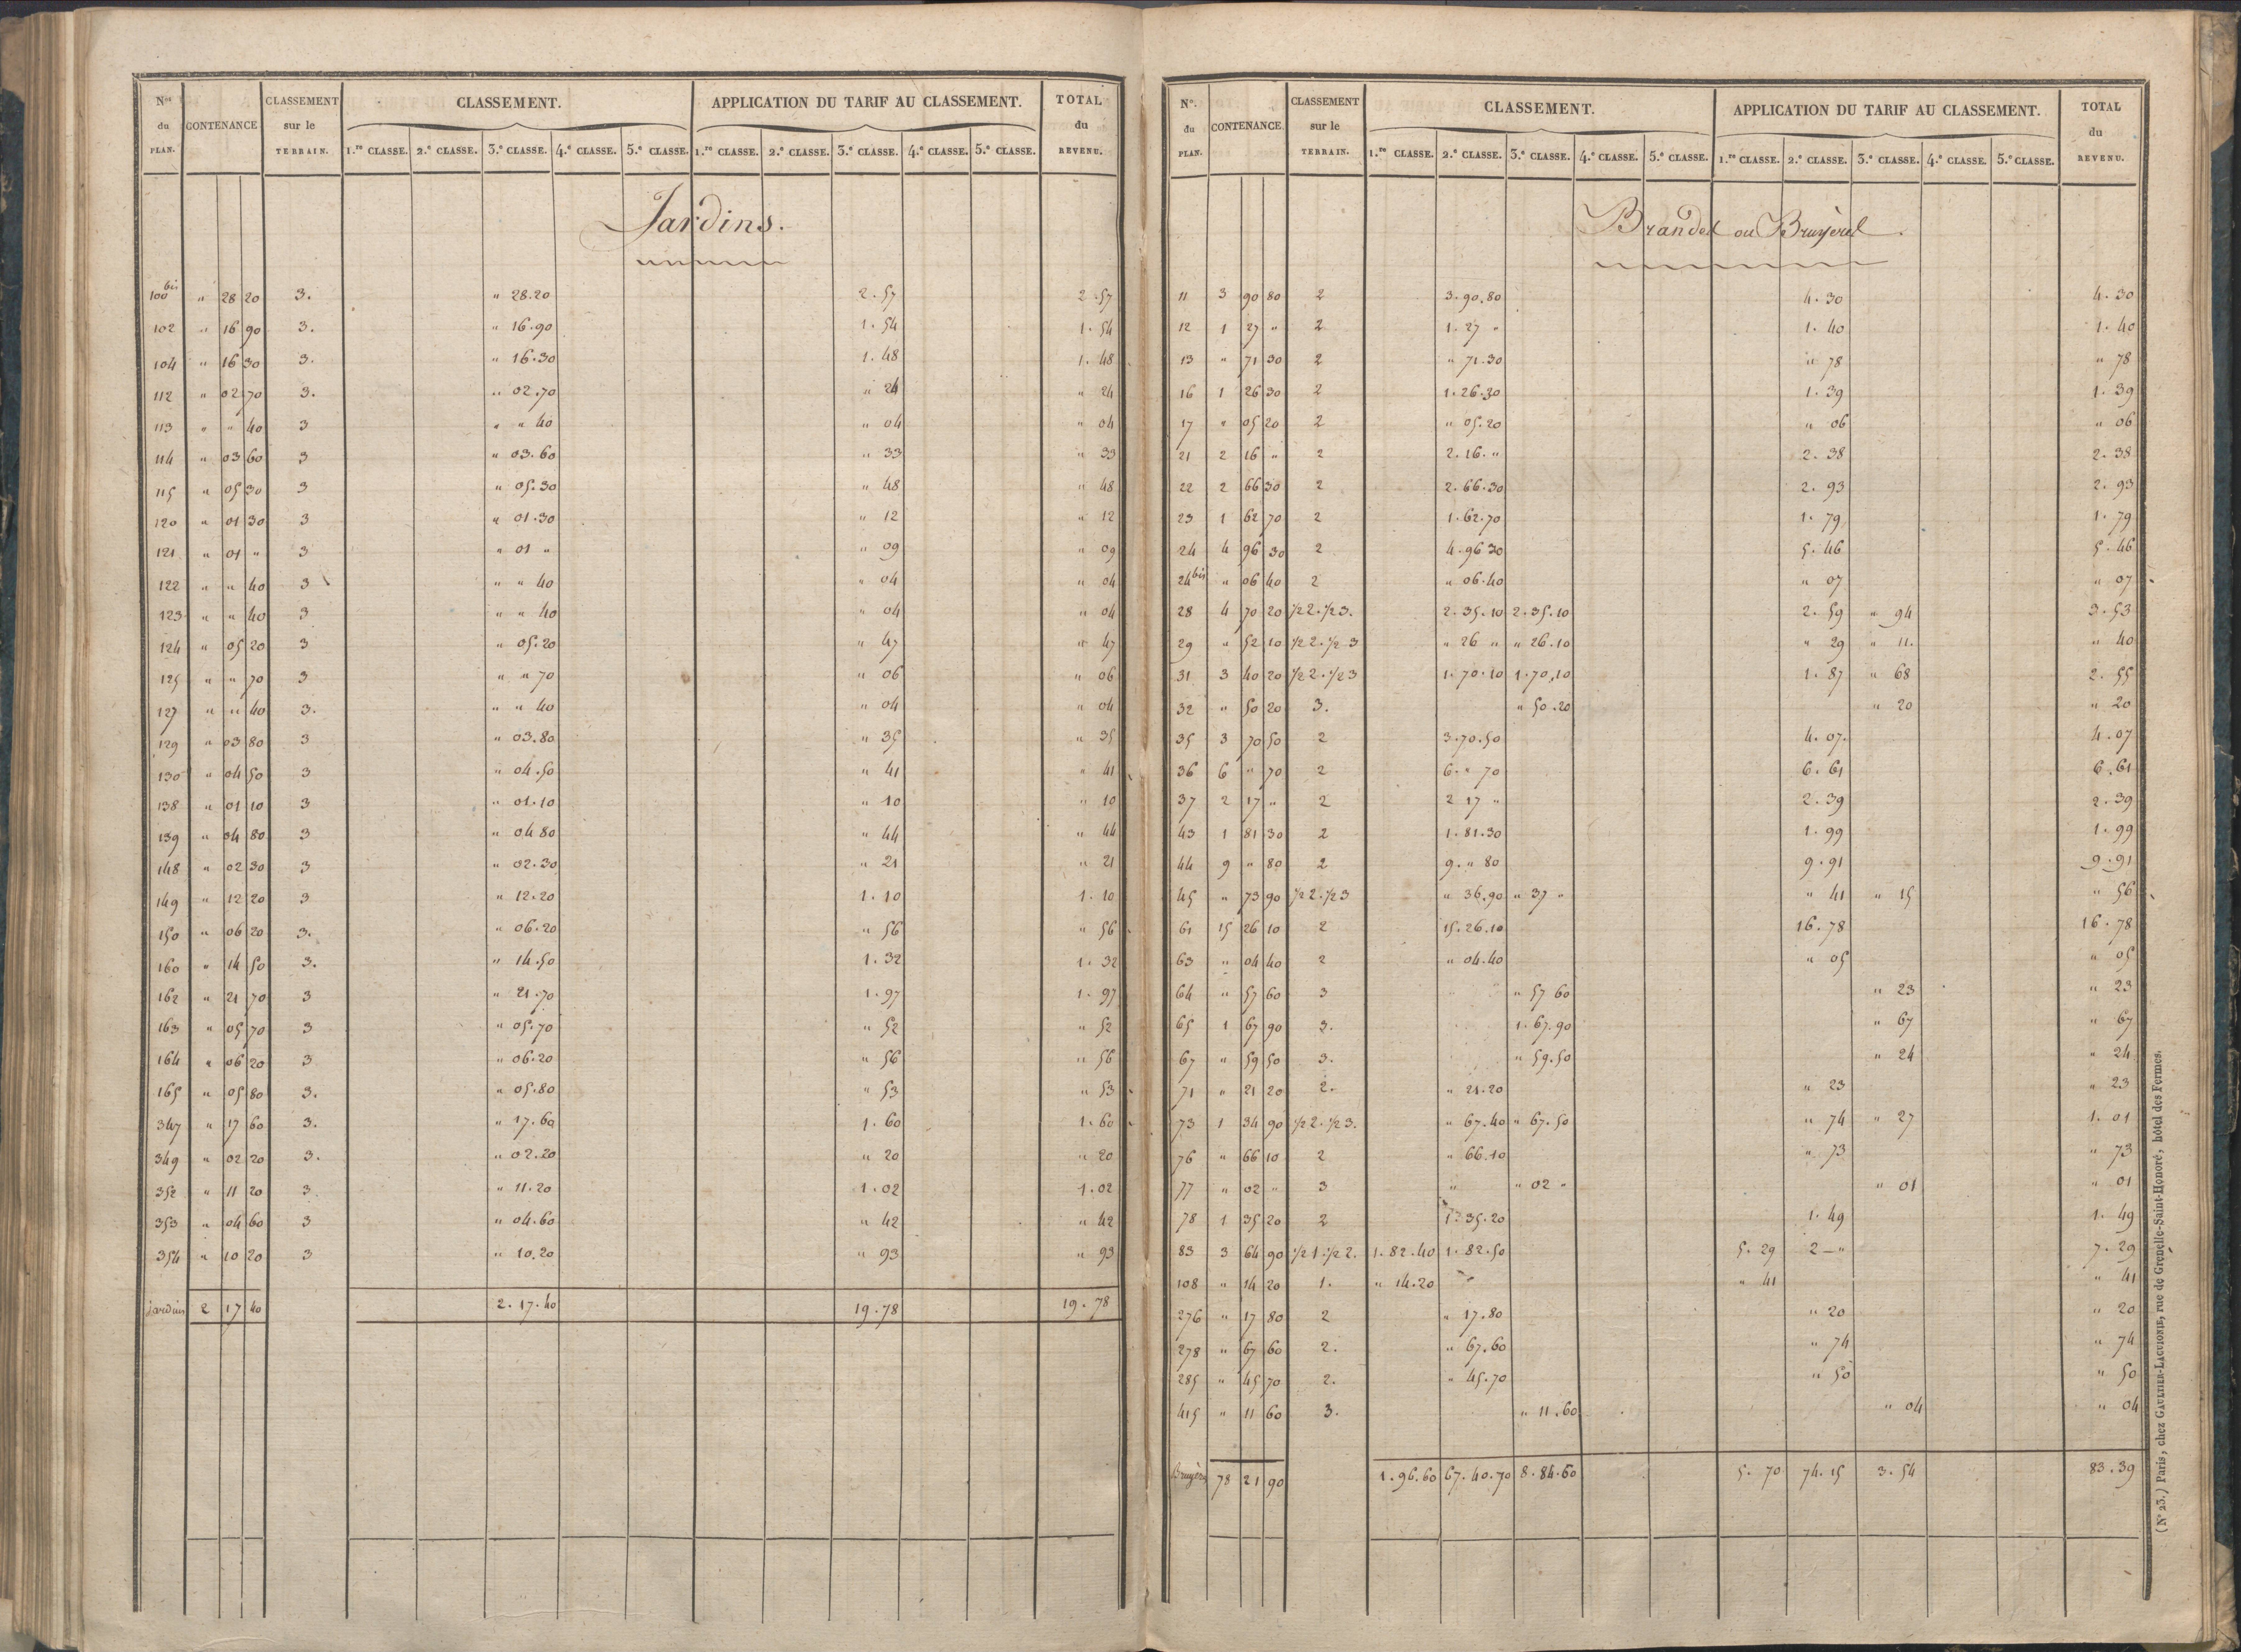 Nos du PLAN. CONTENANCE CLASSEMENT sur le TERRAIN. CLASSEMENT. APPLICATION DU TARIF AU CLASSEMENT. TOTAL du REVENU.
1.re CLASSE. 2.e CLASSE. 3.e CLASSE. 4.e CLASSE. 5.e CLASSE. 1.re CLASSE. 2.e CLASSE. 3.e CLASSE. 4.e CLASSE. 5.e CLASSE.
Jardins.
100 bis " 28 20 3. " 28.20 2.57 2.57
102 " 16 90 3. " 16.90 1.54 1.54
104 " 16 30 3. " 16.30 1.48 1.48
112 " 02 70 3. " 02.70 " 24 " 24
113 " " 40 3 " " 40 " 04 " 04
114 " 03 60 3 " 03.60 " 33 " 33
115 " 05 30 3 " 05.30 " 48 " 48
120 " 01 30 3 " 01.30 " 12 " 12
121 " 01 " 3 " 01 " " 09 " 09
122 " " 40 3 " " 40 " 04 " 04
123 " " 40 3 " " 40 " 04 " 04
124 " 05 20 3 " 05.20 " 47 " 47
125 " " 70 3 " " 70 " 06 " 06
127 " " 40 3. " " 40 " 04 " 04
129 " 03 80 3 " 03.80 " 35 " 35
130 " 04 50 3 " 04.50 " 41 " 41
138 " 01 10 3 " 01.10 " 10 " 10
139 " 04 80 3 " 04 80 " 44 " 44
148 " 02 30 3 " 02.30 " 21 " 21
149 " 12 20 3 " 12.20 1.10 1.10
150 " 06 20 3. " 06.20 " 56 " 56
160 " 14 50 3. " 14.50 1.32 1.32
162 " 21 70 3 " 21.70 1.97 1.97
163 " 05 70 3 " 05.70 " 52 " 52
164 " 06 20 3 " 06.20 " 56 " 56
165 " 05 80 3. " 05.80 " 53 " 53
347 " 17 60 3. " 17.60 1.60 1.60
349 " 02 20 3. " 02.20 " 20 " 20
352 " 11 20 3 " 11.20 1.02 1.02
353 " 04 60 3 " 04.60 " 42 " 42
354 " 10 20 3 " 10.20 " 93 " 93
jardins 2 17 40 2.17.40 19.78 19.78
No. du PLAN. CONTENANCE. CLASSEMENT sur le TERRAIN. CLASSEMENT. APPLICATION DU TARIF AU CLASSEMENT. TOTAL du REVENU.
1.re CLASSE. 2.e CLASSE. 3.e CLASSE. 4.e CLASSE. 5.e CLASSE. 1.re CLASSE. 2.e CLASSE. 3.e CLASSE. 4.e CLASSE. 5.e CLASSE.
Brandes ou Bruyères.
11 3 90 80 2 3.90.80 4.30 4.30
12 1 27 " 2 1.27 " 1.40 1.40
13 " 71 30 2 " 71.30 " 78 " 78
16 1 26 30 2 1.26.30 1.39 1.39
17 " 05 20 2 " 05.20 " 06 " 06
21 2 16 " 2 2.16." 2.38 2.38
22 2 66 30 2 2.66.30 2.93 2.93
23 1 62 70 2 1.62.70 1.79 1.79
24 4 96 30 2 4.96 30 5.46 5.46
24 bis " 06 40 2 " 06.40 " 07 " 07
28 4 70 20 1/2 2. 1/2 3. 2.35.10 2.35.10 2.59 " 94 3.53
29 " 52 10 1/2 2. 1/2 3 " 26 " " 26.10 " 29 " 11. " 40
31 3 40 20 1/2 2. 1/2 3 1.70.10 1.70.10 1.87 " 68 2.55
32 " 50 20 3. " 50.20 " 20 " 20
35 3 70 50 2 3.70.50 4.07. 4.07
36 6 " 70 2 6." 70 6.61 6.61
37 2 17 " 2 2 17 " 2.39 2.39
43 1 81 30 2 1.81.30 1.99 1.99
44 9 " 80 2 9." 80 9.91 9.91
45 " 73 90 1/2 2. 1/2 3 " 36.90 " 37 " " 41 " 15 " 56
61 15 26 10 2 15.26.10 16.78 16.78
63 " 04 40 2 " 04.40 " 05 " 05
64 " 57 60 3 " 57 60 " 23 " 23
65 1 67 90 3. 1.67.90 " 67 " 67
67 " 59 50 3. " 59.50 " 24 " 24
71 " 21 20 2. " 21.20 " 23 " 23
73 1 34 90 1/2 2. 1/2 3. " 67.40 " 67.50 " 74 " 27 1.01
76 " 66 10 2 " 66.10 " 73 " 73
77 " 02 " 3 " " 02 " " 01 " 01
78 1 35 20 2 1.35.20 1.49 1.49
83 3 64 90 1/2 1. 1/2 2. 1.82.40 1.82.50 5.29 2 - " 7.29
108 " 14 20 1. " 14.20 " 41 " 41
276 " 17 80 2 " 17.80 " 20 " 20
278 " 67 60 2. " 67.60 " 74 " 74
285 " 45 70 2. " 45.70 " 50 " 50
415 " 11 60 3. " 11.60 " 04 " 04
Bruyères 78 21 90 1.96.60 67.40.70 8.84.60 5.70 74.15 3.54 83.39
(No 23.) Paris, chez GAULTIER-LAGUIONIE, rue de Grenelle-Saint-Honoré, hôtel des Fermes.